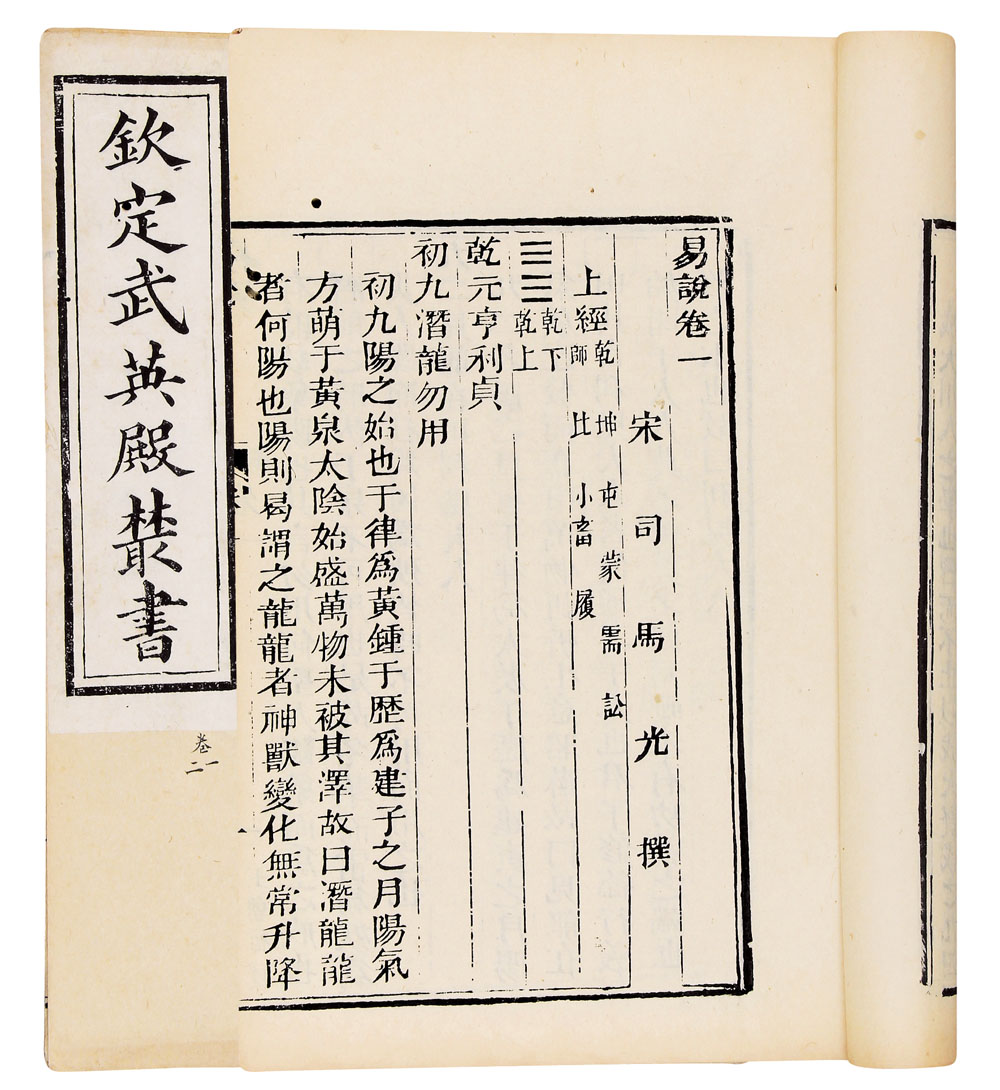 易說卷一
宋司馬光撰
上經乾坤屯蒙需訟
師比小畜履
䷀乾下
乾上
乾元亨利貞
初九潛龍勿用
初九陽之始也于律爲黃鍾于歷爲建子之月陽氣
方萌于黃泉太陰始盛萬物未被其澤故曰潛龍龍
者何陽也陽則曷謂之龍龍者神獸變化無常升降
欽定武英殿叢書
卷一
二